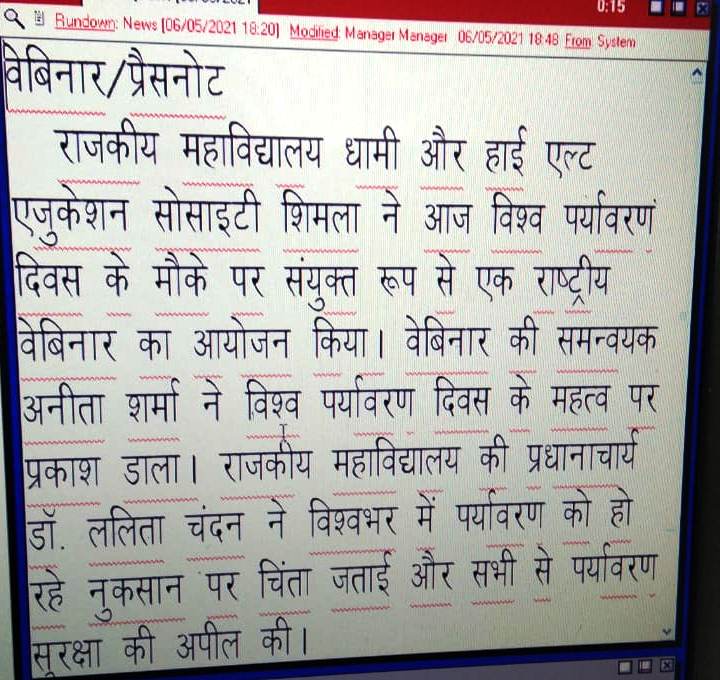 0:15
Rundown: News [06/05/2021 18:20] Modified: Manager Manager 06/05/2021 18:48 From System
वेबिनार/प्रैसनोट
राजकीय महाविद्यालय धामी और हाई एल्ट
एजुकेशन सोसाइटी शिमला ने आज विश्व पर्यावरण
दिवस के मौके पर संयुक्त रूप से एक राष्ट्रीय
वेबिनार का आयोजन किया। वेबिनार की समन्वयक
अनीता शर्मा ने विश्व पर्यावरण दिवस के महत्व पर
प्रकाश डाला। राजकीय महाविद्यालय की प्रधानाचार्य
डॉ. ललिता चंदन ने विश्वभर में पर्यावरण को हो
रहे नुकसान पर चिंता जताई और सभी से पर्यावरण
सुरक्षा की अपील की।